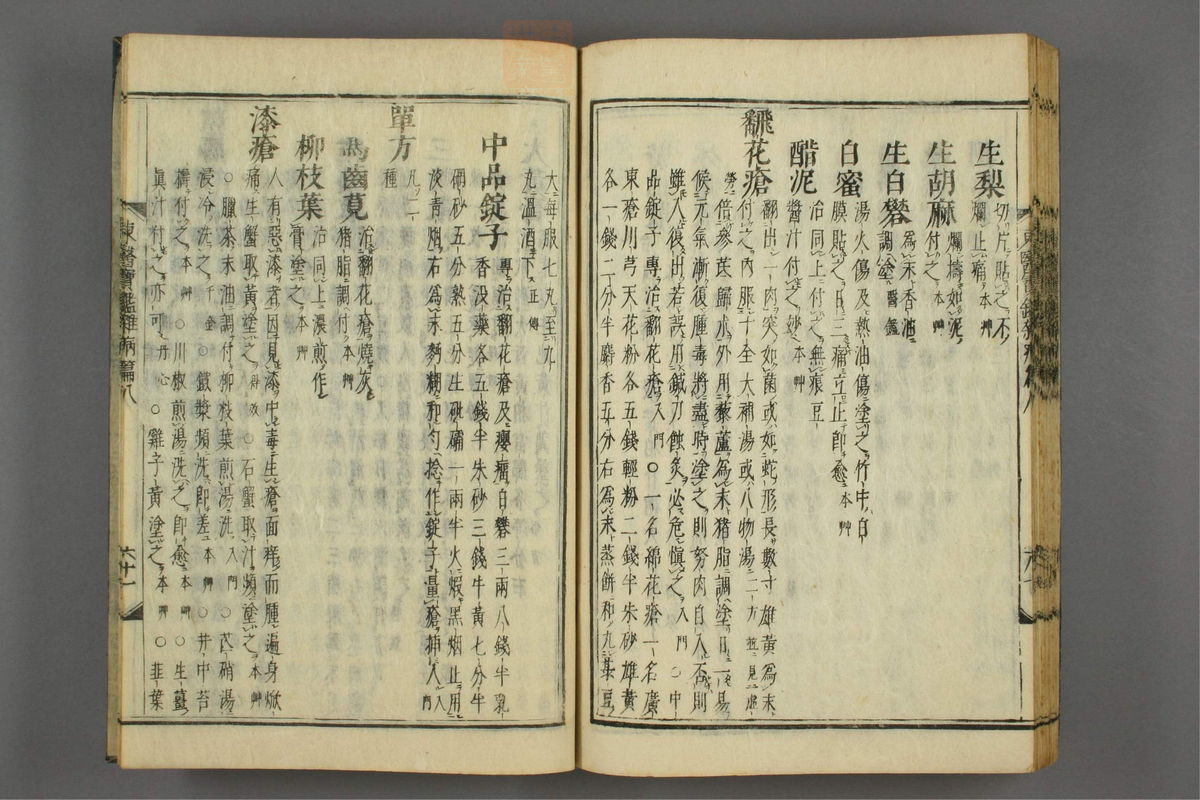 生梨 切片貼之不
爛止痛 本艸
生胡麻 爛擣如泥
付之 本艸
生白礬 爲末香油
調塗 醫鑑
湯火傷及熱油傷塗之竹中白
白蜜 膜貼之日三痛立止即愈 本艸
治同上付之無痕
醋泥 醬汁付之妙 本艸
飜花瘡 飜出一肉突如菌或如蛇形長數寸雄黃爲末
付之內服十全大補湯或八物湯 二方並見虛
勞 倍參芪歸朮外用藜蘆爲末猪脂調塗日一易
候元氣漸復腫毒將盡時塗之則努肉自入否則
雖入復出若誤用鍼刀蝕灸必危愼之 入門 ○中
品錠子專治飜花瘡 入門 ○一名綿花瘡一名廣
東瘡川芎天花粉各五錢輕粉二錢半朱砂雄黃
各一錢二分半麝香五分右爲末蒸餠和丸菉豆
大每服七丸至九
丸溫酒下 正傳
中品錠子 專治飜花瘡及癭瘤白礬三兩八錢半乳
香沒藥各五錢半朱砂三錢牛黃七分半
硇砂五分熟五分生砒礵一兩半火煆黑烟止用
淡靑烟右爲末麪糊和勻捻作錠子量瘡揷入 入門
單方 凡二
種
馬齒莧 治飜花瘡燒灰
猪脂調付 本艸
柳枝葉 治同上濃煎作
膏塗之 本艸
漆瘡 人有惡漆者因見漆中毒生瘡面痒而腫遍身焮
痛生蟹取黃塗之 得效 ○石蟹取汁頻塗之 本艸
○臘茶末油調付○柳枝葉煎湯洗 入門 ○芒硝湯
浸冷洗之 千金 ○鐵漿頻洗即差 本艸 ○井中苔
擣付之 本艸 ○川椒煎湯洗之即愈 本艸 ○生薑
眞汁付之亦可 丹心 ○雞子黃塗之 本艸 ○韭葉
東醫寶鑑雜病篇八
六十一